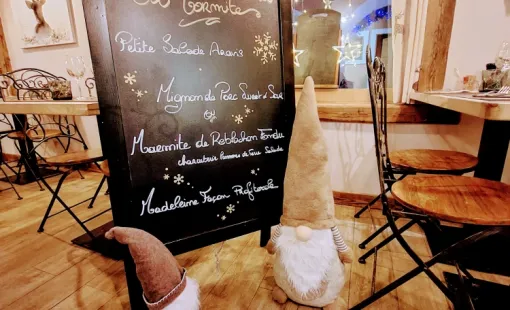 La Tormite
Petite Salade Aravis
Mignon de Porc Sweet & Sour
Marmite de Reblochon Fondu
charcuterie Pommes de Terre Salade
Madeleine Façon Profiterole